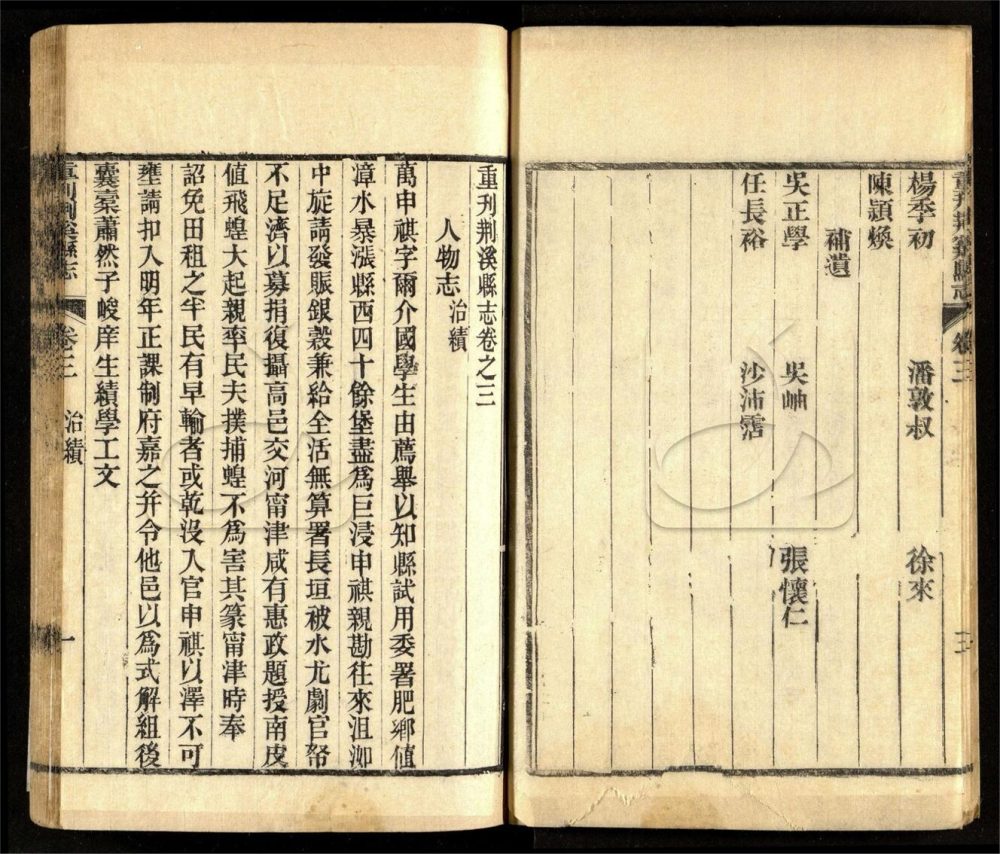 重刊荊溪縣志 卷三 三
楊季初 潘敦叔 徐來
陳穎煥
補遺
吳正學 吳岫 張懷仁
任長裕 沙沛霑
重刊荊溪縣志卷之三
人物志 治績
萬申祺字爾介國學生由薦舉以知縣試用委署肥鄉值
漳水暴漲縣西四十餘堡盡爲巨浸申祺親勘往來沮洳
中旋請發賑銀穀兼給全活無算署長垣被水尤劇官帑
不足濟以募捐復攝高邑交河甯津咸有惠政題授南皮
值飛蝗大起親率民夫撲捕蝗不爲害其篆甯津時奉
詔免田租之半民有早輸者或乾沒入官申祺以澤不可
壅請扣入明年正課制府嘉之并令他邑以爲式解組後
囊橐蕭然子峻庠生績學工文
重刊荊溪縣志 卷三 治績 一